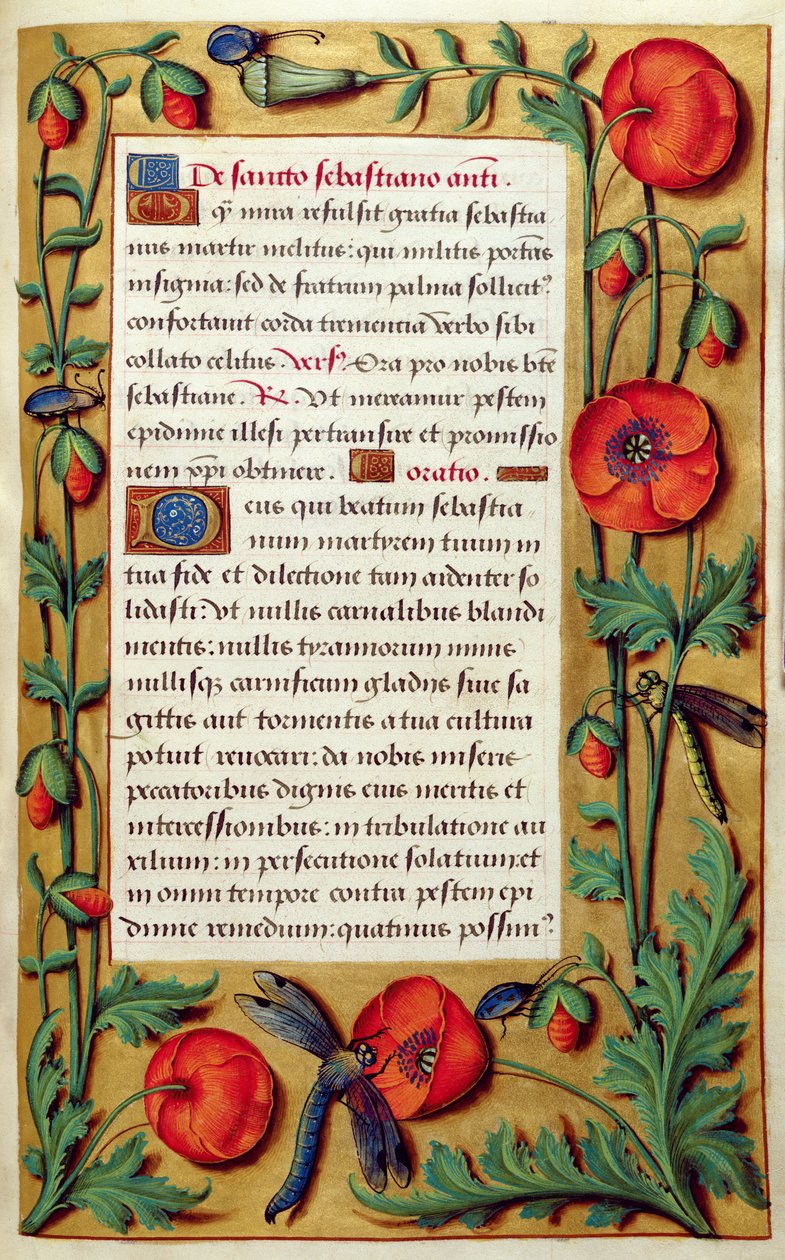 De sancto sebastiano anti.
O q̄ mira refulsit gratia sebastia
nus martir inclitus: qui militis portās
insignia: sed de fratrum palma sollicitꝰ
confortauit corda trementia verbo sibi
collato celitus. versꝰ. Ora pro nobis bte
sebastiane. ℟. Vt mereamur pestem
epidimie illesi pertransire et promissio
nem xp̄i obtinere. oratio.
Deus qui beatum sebastia
num martyrem tuum in
tua fide et dilectione tam ardenter so
lidasti: vt nullis carnalibus blandi
mentis: nullis tyrannorum minis
nullisqꝫ carnificum gladijs siue sa
gittis aut tormentis a tua cultura
potuit reuocari: da nobis miseris
peccatoribus dignis eius meritis et
intercessionibus: in tribulatione au
xilium: in persecutione solatium: et
in omni tempore contra pestem epi
dimie remedium: quatinus possimꝰ